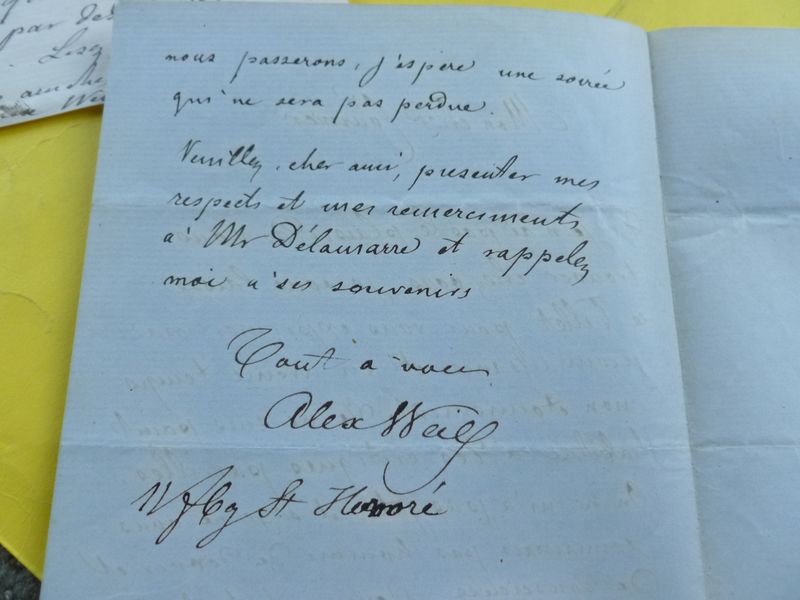 par des
nous passerons, j'espère une soirée
qui ne sera pas perdue.
Veuillez, cher ami, presenter mes
respects et mes remerciments
à Mr Délamarre et rappelez
moi à ses souvenirs
Tout à vous
Alex Weill
11 fbg St Honoré